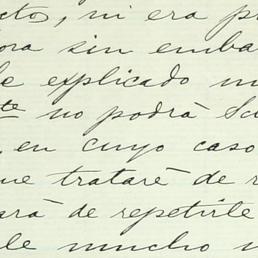 ctos, ni era p
ora sin emba
le explicado m
te no podrá
, en cuyo caso
ue trataré de r
ará de repetirle
le mucho